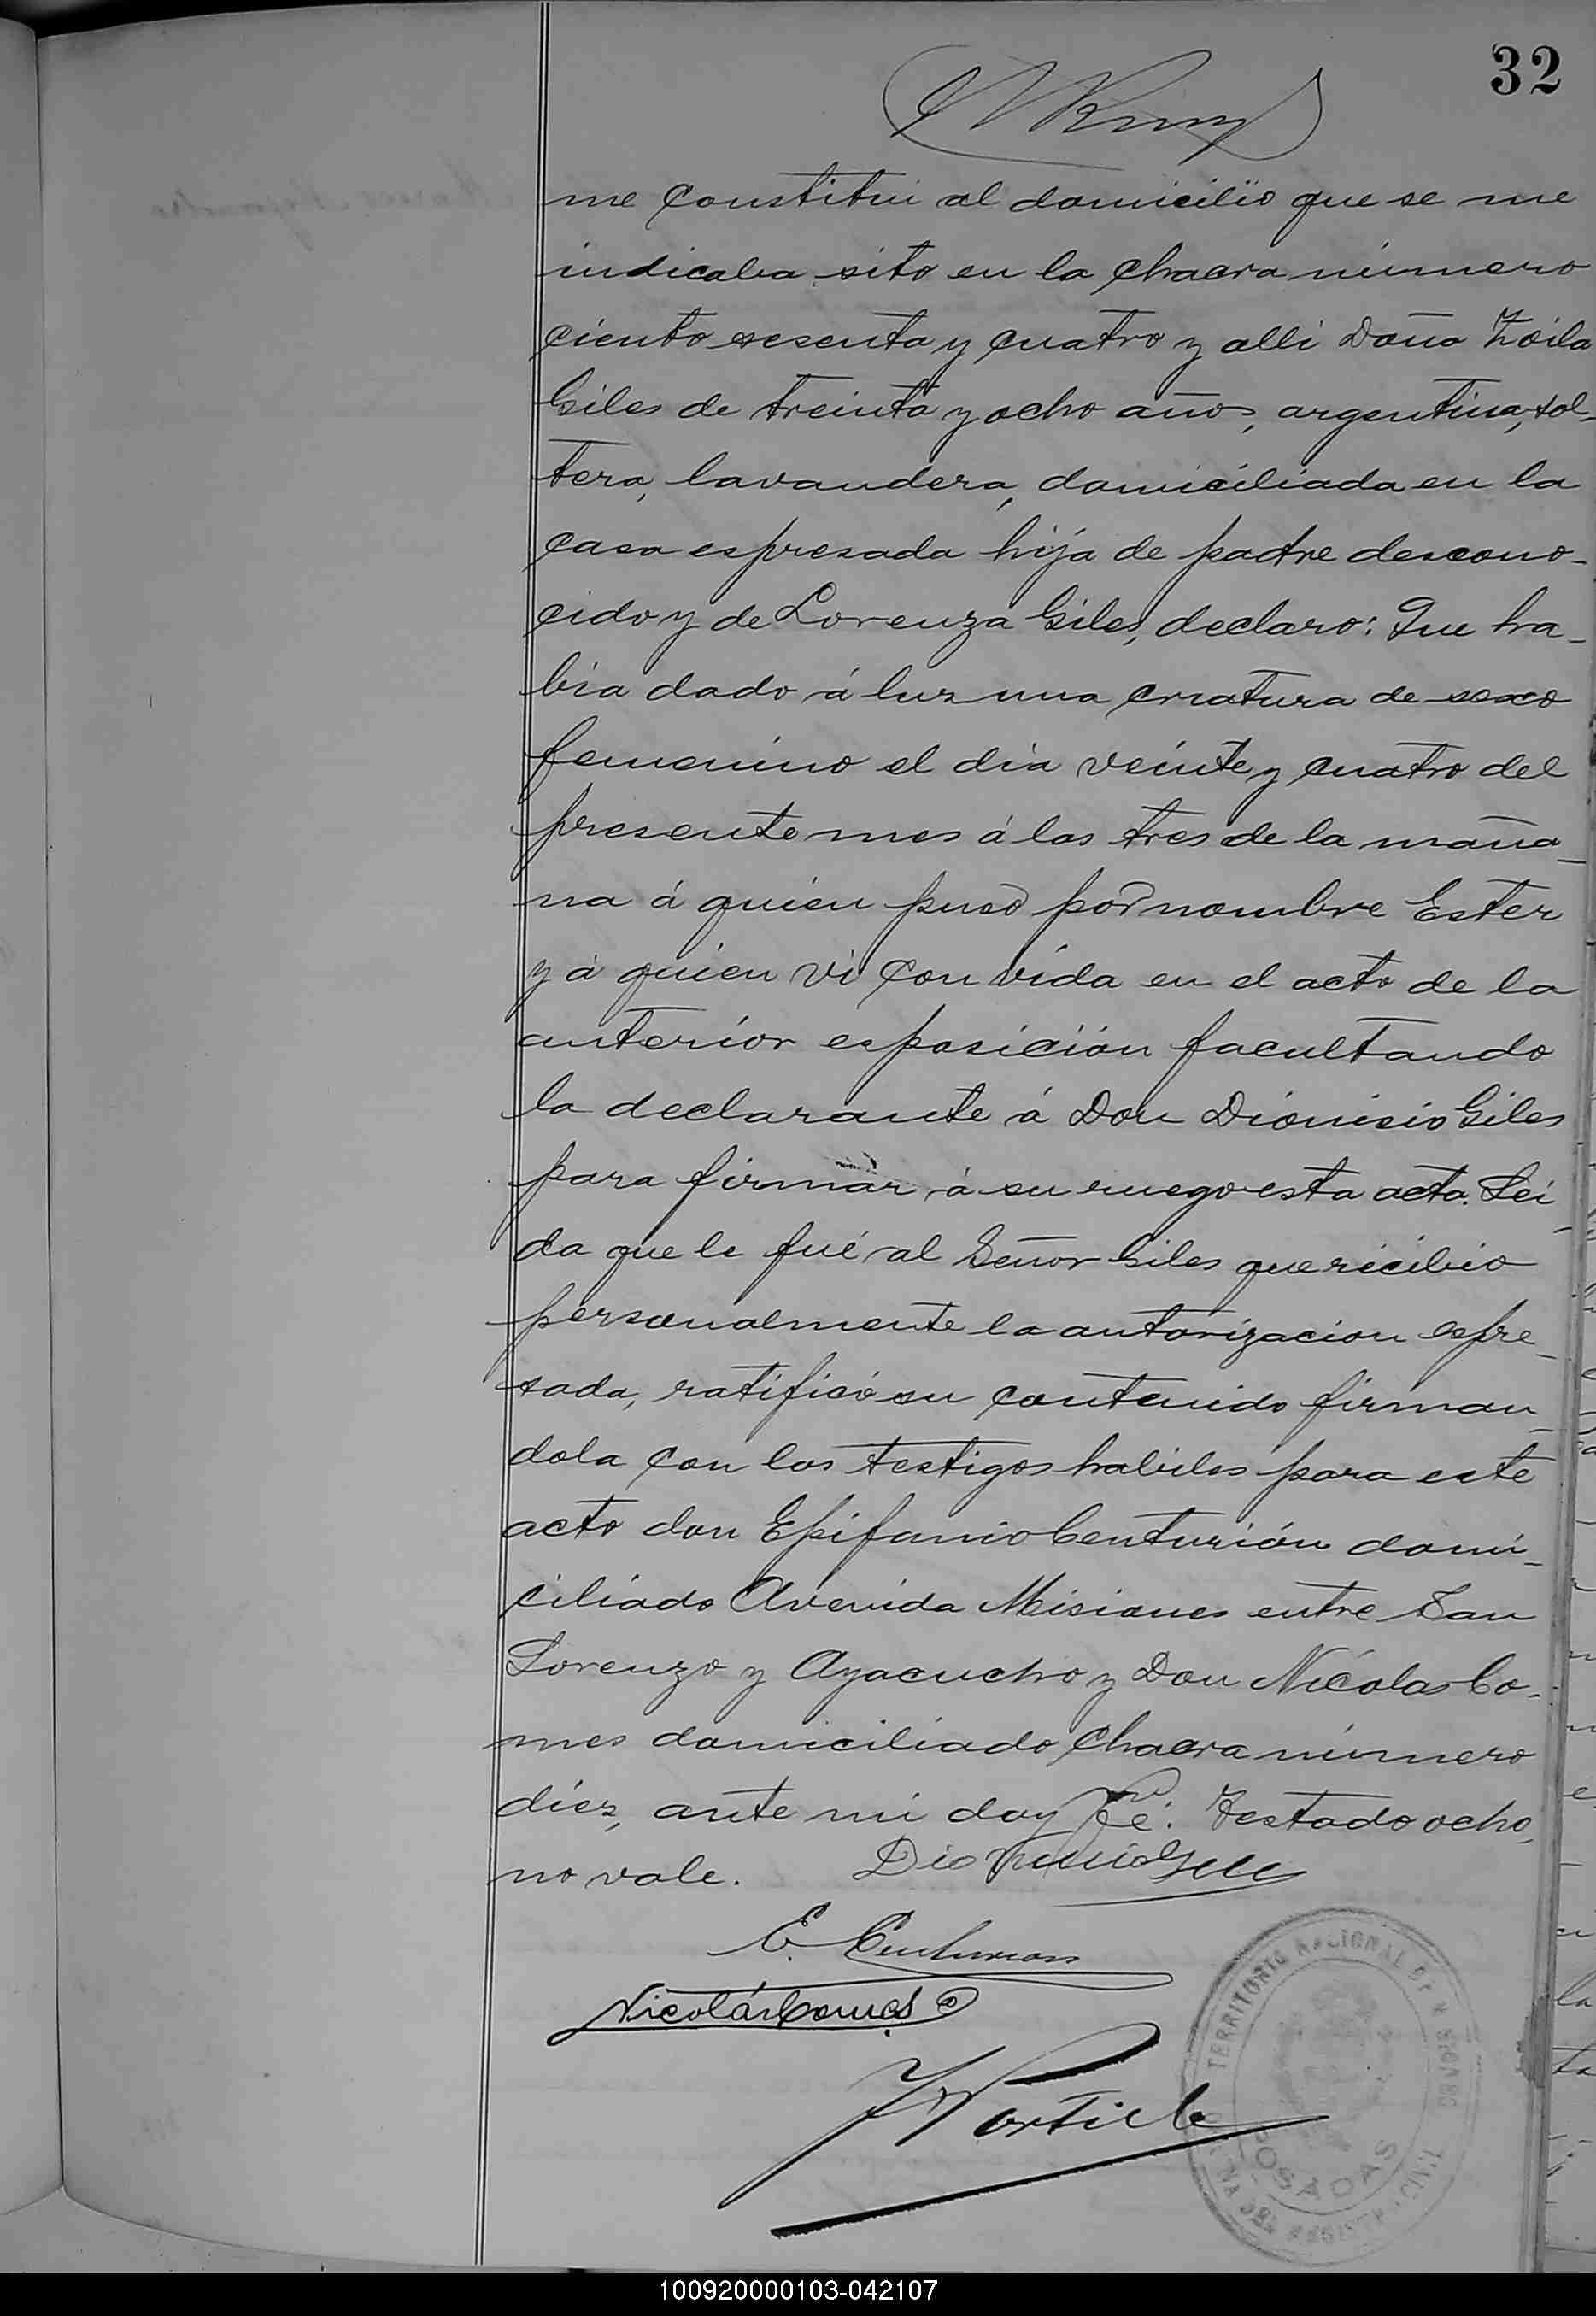 32
me constitui al domicilio que se me
indicaba sito en la chacra número
ciento sesenta y cuatro y alli Doña Zoila
Giles de treinta y ocho años, argentina, sol-
tera, lavandera, domiciliada en la
casa espresada hija de padre descono-
cido y de Lorenza Giles, declaro: Que ha-
bia dado á luz una criatura de sexo
femenino el dia veinte y cuatro del
presente mes á las tres de la maña-
na á quien puso por nombre Ester
y á quien vi con vida en el acto de la
anterior esposición facultando
la declarante á Don Dionisio Giles
para firmar á su ruego esta acta. Lei-
da que le fué al Señor Giles que ricibio
personalmente la autorizacion espre-
sada, ratificó su contenido firman-
dola con los testigos habiles para este
acto don Epifanio Centurión domi-
ciliado Avenida Misiones entre San
Lorenzo y Ayacucho y Don Nicolas Co-
mes domiciliado chacra número
diez, ante mi doy fé. Testado ocho,
no vale. Dionisio Giles
E. Centurion
Nicolás Comes
TERRITORIO NACIONAL DE MISIONES
POSADAS
OFICINA DEL REGISTRO CIVIL
100920000103-042107